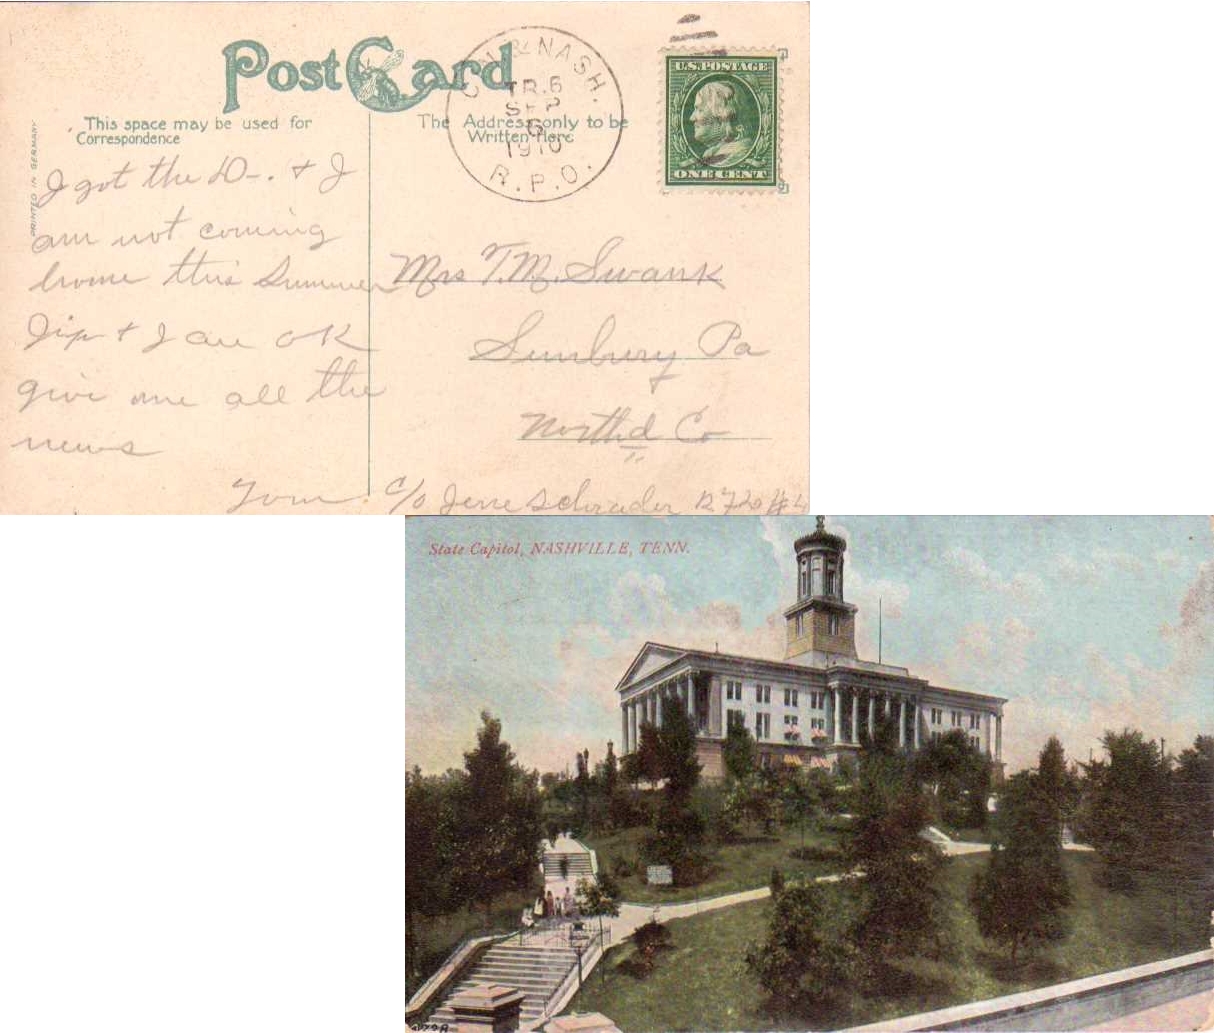 Post Card
This space may be used for
Correspondence
The Address only to be
Written Here
PRINTED IN GERMANY
& NASH.
TR.6
SEP
6
1910
R.P.O.
U.S. POSTAGE
ONE CENT
I got the D-. + I
am not coming
home this Summer
Jip + I are OK
give me all the
news
Tom c/o Jene Schrader
Mrs T.M. Swank
Sunbury Pa
North'd Co
State Capitol, NASHVILLE, TENN.